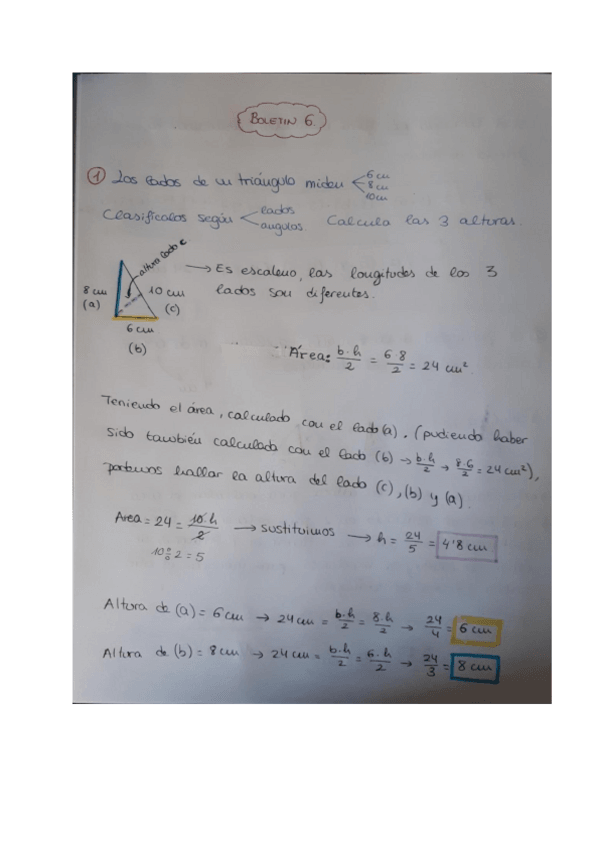 BOLETIN 6.
1 Los lados de un triángulo miden 6 cm
8 cm
10 cm
Clasifícalos según lados
angulos. Calcula las 3 alturas.
altura lado c
8 cm
(a)
10 cm
(c)
6 cm
(b)
→ Es escaleno, las longitudes de los 3
lados son diferentes.
Área: b·h/2 = 6·8/2 = 24 cm²
Teniendo el área, calculado con el lado (a). (pudiendo haber
sido también calculado con el lado (b) → b·h/2 → 8·6/2 = 24 cm²),
podemos hallar la altura del lado (c), (b) y (a).
Area = 24 = 10·h/2 → sustituimos → h = 24/5 = 4'8 cm
2 = 5
Altura de (a) = 6 cm → 24 cm = b·h/2 = 8·h/2 → 24/4 = 6 cm
Altura de (b) = 8 cm → 24 cm = b·h/2 = 6·h/2 → 24/3 = 8 cm